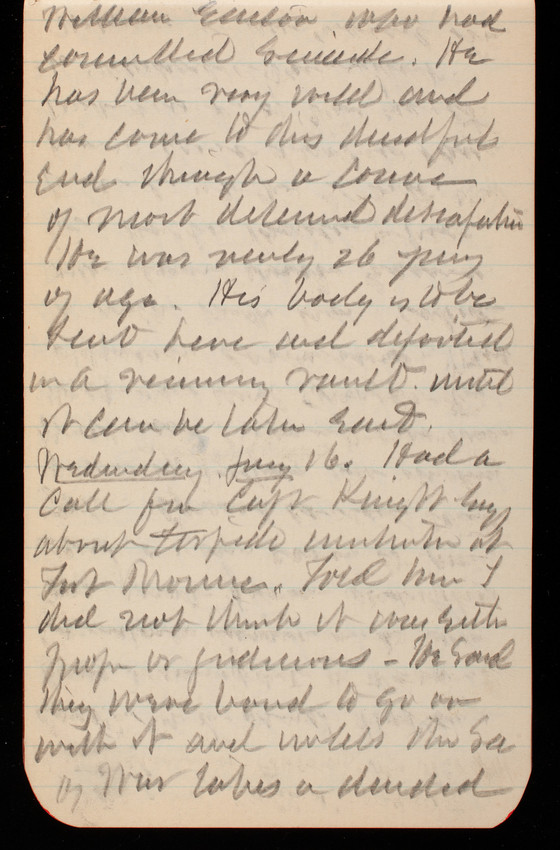 William who had
committed Suicide. He
has been very wild and
has come to this dreadful
End through a course
of most determined dissipation
He was nearly 26 years
of age. His body is to be
sent here and deposited
in a receiving vault until
it can be taken East.
Wednesday Jany 16. Had a
Call from Capt Knight
about torpedo at
Fort Monroe. Told him I
did not think it was either
proper or judicious - He said
they were bound to go on
with it and unless the Sec
of War takes a decided